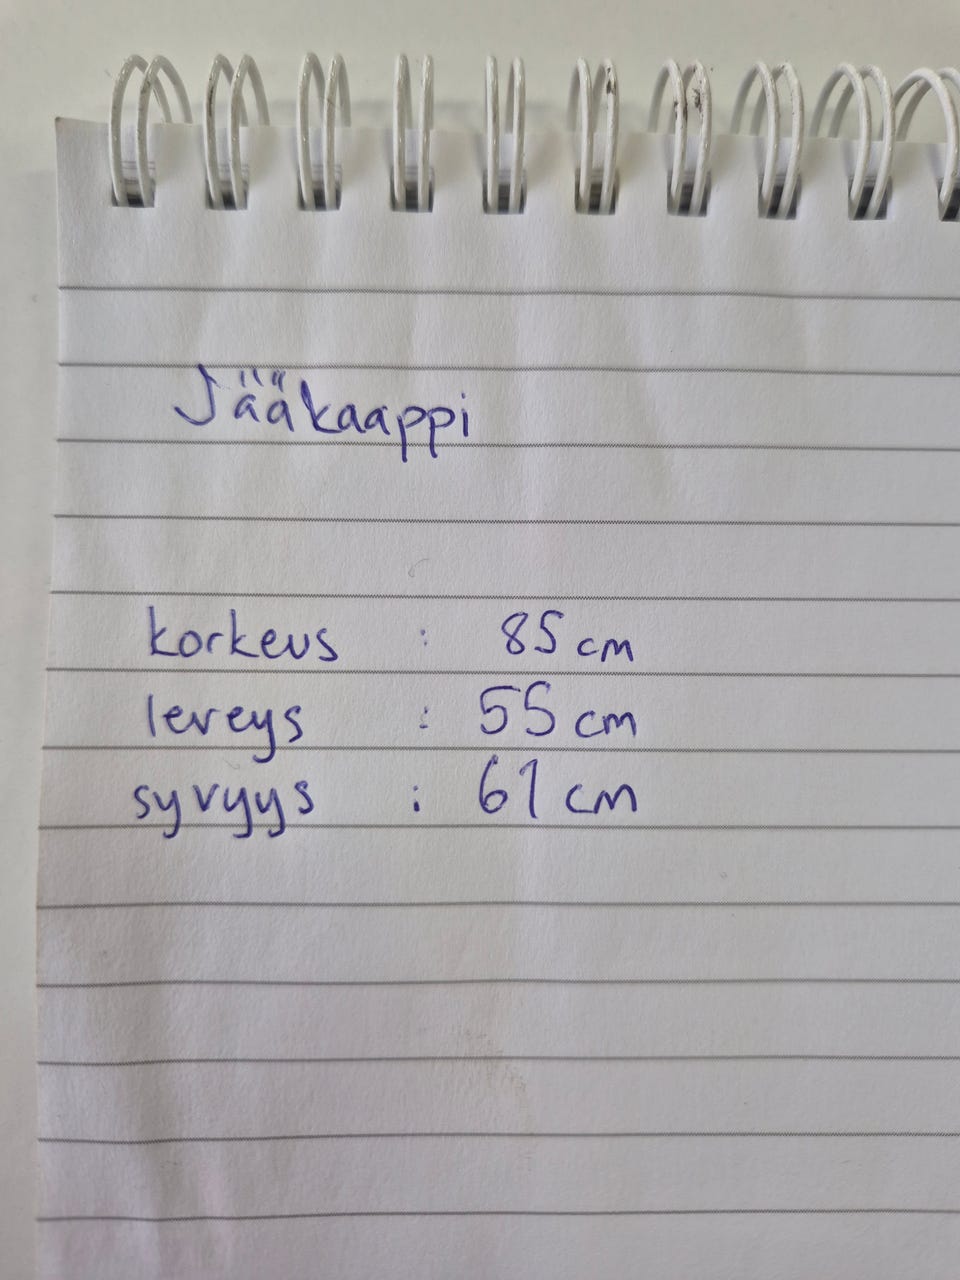 Jääkaappi
korkeus : 85 cm
leveys : 55 cm
syvyys : 61 cm